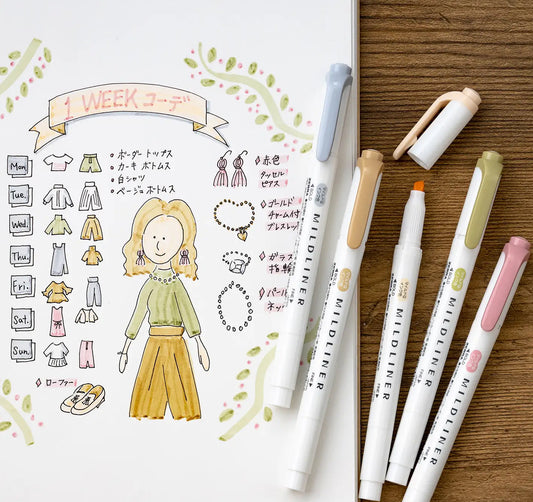 1 WEEK コーデ
Mon
Tue.
Wed.
Thu.
Fri.
Sat.
Sun.
ボーダートップス
カーキボトムス
白シャツ
ベージュボトムス
赤色
タッセル
ピアス
ゴールド
チャーム付
ブレスレット
ガラス
指輪
パール
ネッ
ローファー
MILDLINER
MILDLINER
MILDLINER
MILDLINER
MILDLINER